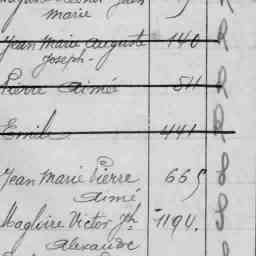 Marie
Jean Marie Auguste 140 R
Joseph-
Pierre Aimé 511 R
Emile 441 R
Jean Marie Pierre 665 S
Aimé
Magloire Victor Jh 1194. S
Alexandre